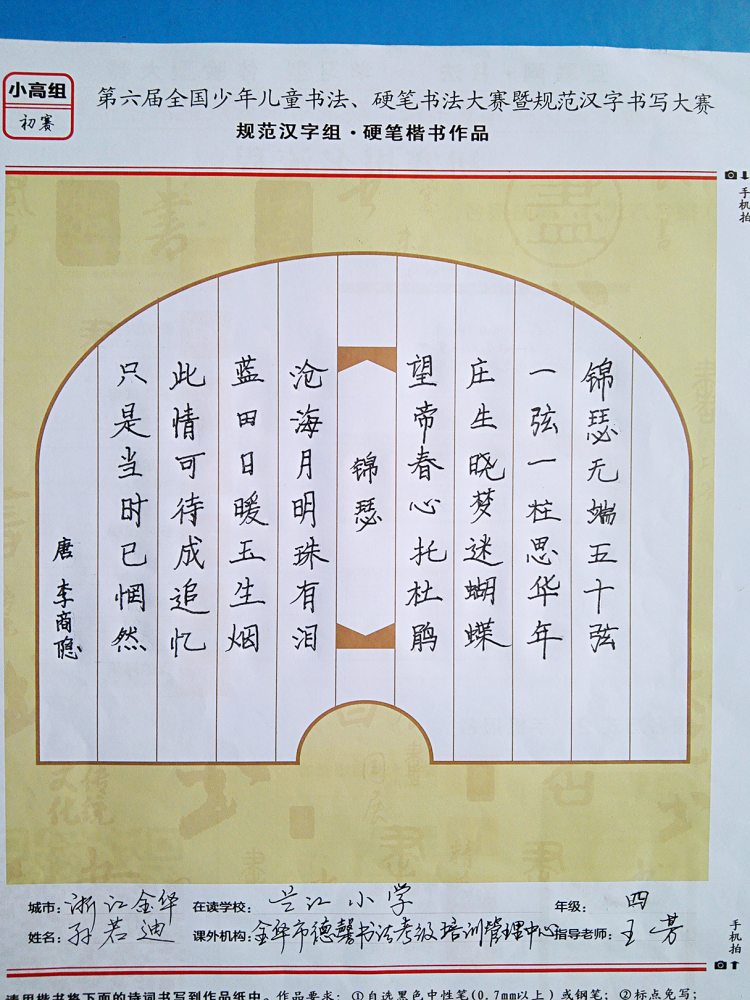 小高组
初赛
第六届全国少年儿童书法、硬笔书法大赛暨规范汉字书写大赛
规范汉字组·硬笔楷书作品
手机拍
锦瑟无端五十弦
一弦一柱思华年
庄生晓梦迷蝴蝶
望帝春心托杜鹃
锦瑟
沧海月明珠有泪
蓝田日暖玉生烟
此情可待成追忆
只是当时已惘然
唐 李商隐
城市：浙江金华 在读学校：兰江小学 年级：四
姓名：孙若迪 课外机构：金华市德馨书法考级培训管理中心 指导老师：王芳
手机拍
请用楷书将下面的诗词书写到作品纸中。作品要求：①自选黑色中性笔(0.7mm以上)或钢笔；②标点免写；